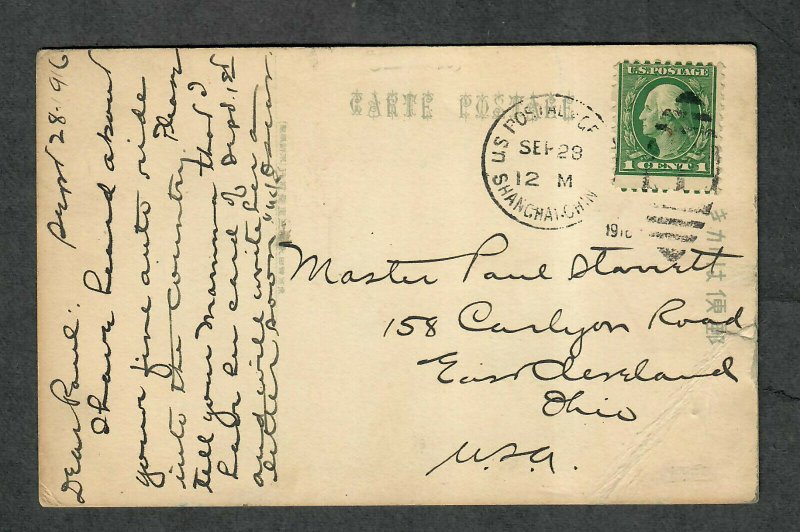 Sept 28-1916
Dear Paul:
I have heard about
your fine auto ride
into the country. Please
tell your Mamma that I
have her card of Sept. 1st
and will write her a
letter soon.
CARTE POSTALE
U.S. POSTAL
SEP 28
12 M
SHANGHAI, CHINA
1916
U.S. POSTAGE
1 CENT 1
Master Paul Starrett
158 Carlyon Road
East Cleveland
Ohio
U.S.A.
きかは便郵